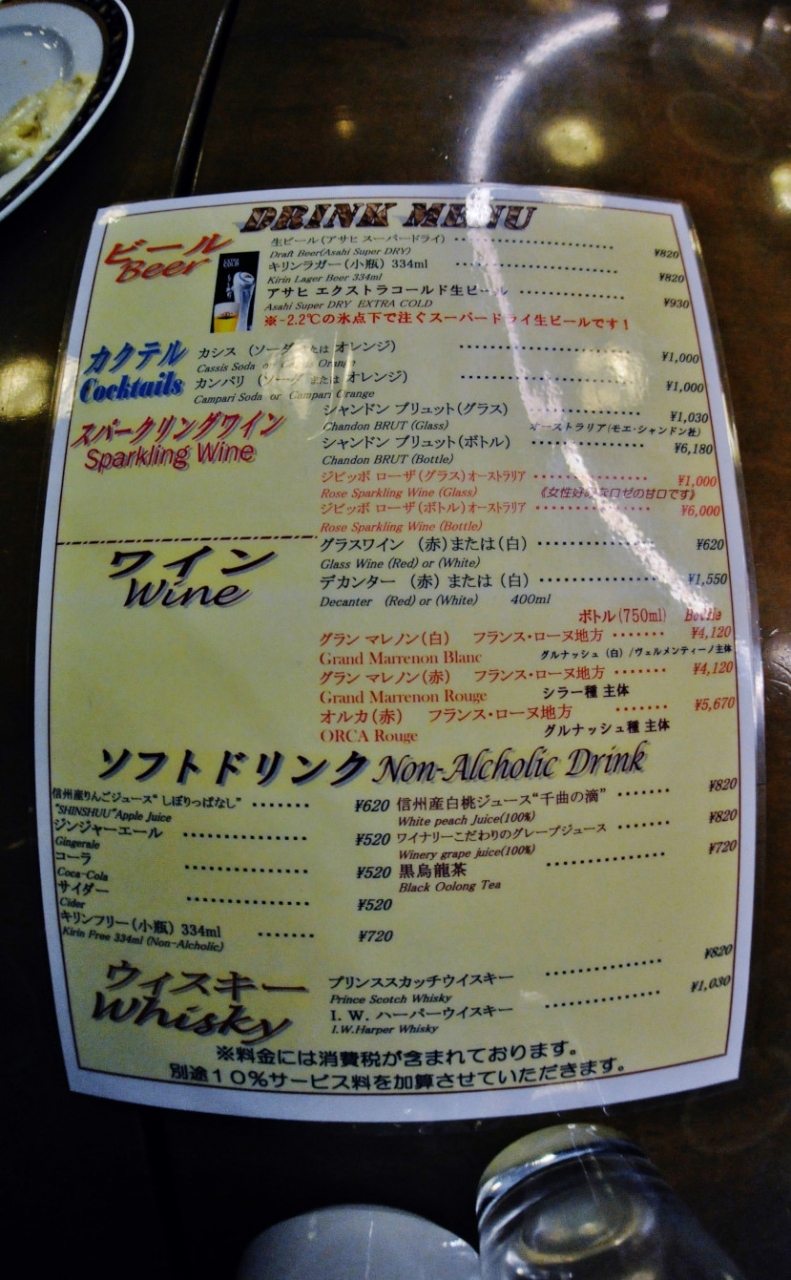 DRINK MENU
ビール
Beer
生ビール(アサヒ スーパードライ) ¥820
Draft Beer(Asahi Super DRY)
キリンラガー(小瓶) 334ml ¥820
Kirin Lager Beer 334ml
アサヒ エクストラコールド生ビール ¥930
Asahi Super DRY EXTRA COLD
※-2.2℃の氷点下で注ぐスーパードライ生ビールです!
カクテル
Cocktails
カシス (ソーダ または オレンジ) ¥1,000
Cassis Soda or Orange
カンパリ (ソーダ または オレンジ) ¥1,000
Campari Soda or Campari Orange
スパークリングワイン
Sparkling Wine
シャンドン ブリュット(グラス) ¥1,030
Chandon BRUT (Glass) オーストラリア(モエ・シャンドン社)
シャンドン ブリュット(ボトル) ¥6,180
Chandon BRUT (Bottle)
ジビッボ ローザ(グラス)オーストラリア ¥1,000
Rose Sparkling Wine (Glass) 《女性好みなロゼの甘口です》
ジビッボ ローザ(ボトル)オーストラリア ¥6,000
Rose Sparkling Wine (Bottle)
ワイン
Wine
グラスワイン (赤)または(白) ¥620
Glass Wine (Red) or (White)
デカンター (赤) または (白) ¥1,550
Decanter (Red) or (White) 400ml
ボトル(750ml) Bottle
グラン マレノン(白) フランス・ローヌ地方 ¥4,120
Grand Marrenon Blanc グルナッシュ (白) /ヴェルメンティーノ主体
グラン マレノン(赤) フランス・ローヌ地方 ¥4,120
Grand Marrenon Rouge シラー種 主体
オルカ(赤) フランス・ローヌ地方 ¥5,670
ORCA Rouge グルナッシュ種 主体
ソフトドリンク Non-Alcholic Drink
信州産りんごジュース“しぼりっぱなし” ¥620
"SHINSHUU"Apple Juice
ジンジャーエール ¥520
Gingerale
コーラ ¥520
Coca-Cola
サイダー ¥520
Cider
キリンフリー(小瓶) 334ml ¥720
Kirin Free 334ml (Non-Alcholic)
信州産白桃ジュース“千曲の滴” ¥820
White peach Juice(100%)
ワイナリーこだわりのグレープジュース ¥820
Winery grape juice(100%)
黒烏龍茶 ¥720
Black Oolong Tea
ウィスキー
Whisky
プリンススカッチウイスキー ¥820
Prince Scotch Whisky
I. W. ハーパーウイスキー ¥1,030
I.W.Harper Whisky
※料金には消費税が含まれております。
別途10%サービス料を加算させていただきます。